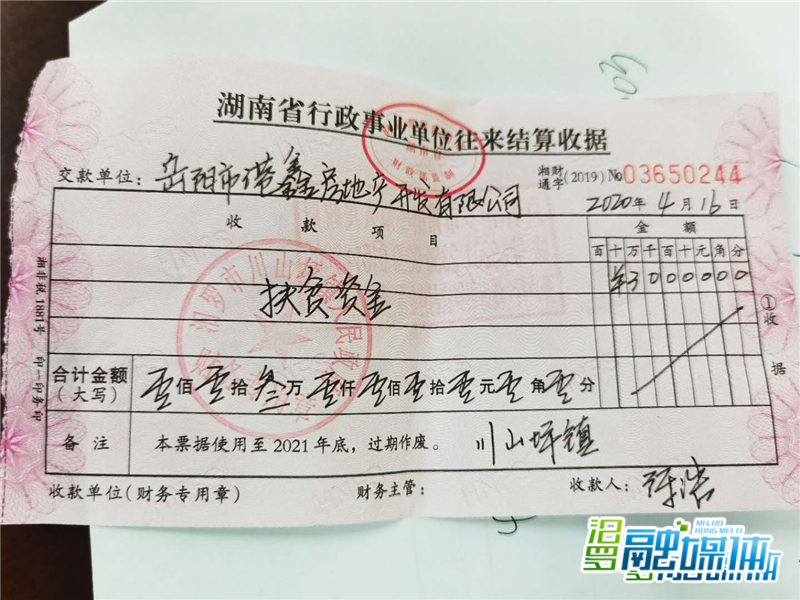 湖南省行政事业单位往来结算收据
财政部监制
交款单位：岳阳市 鑫房地产开发有限公司
湘财通字(2019) №03650244
2020年4月16日
收款项目
金额
百十万千百十元角分
扶贫资金
¥3000000
汨罗市川山坪镇人民政府
合计金额（大写）
零佰零拾叁万零仟零佰零拾零元零角零分
备注 本票据使用至2021年底，过期作废。 川山坪镇
收款单位（财务专用章） 财务主管： 收款人：
湘非税1881号
①收据
汨罗融媒体
MI LUO
RONG MEI TI